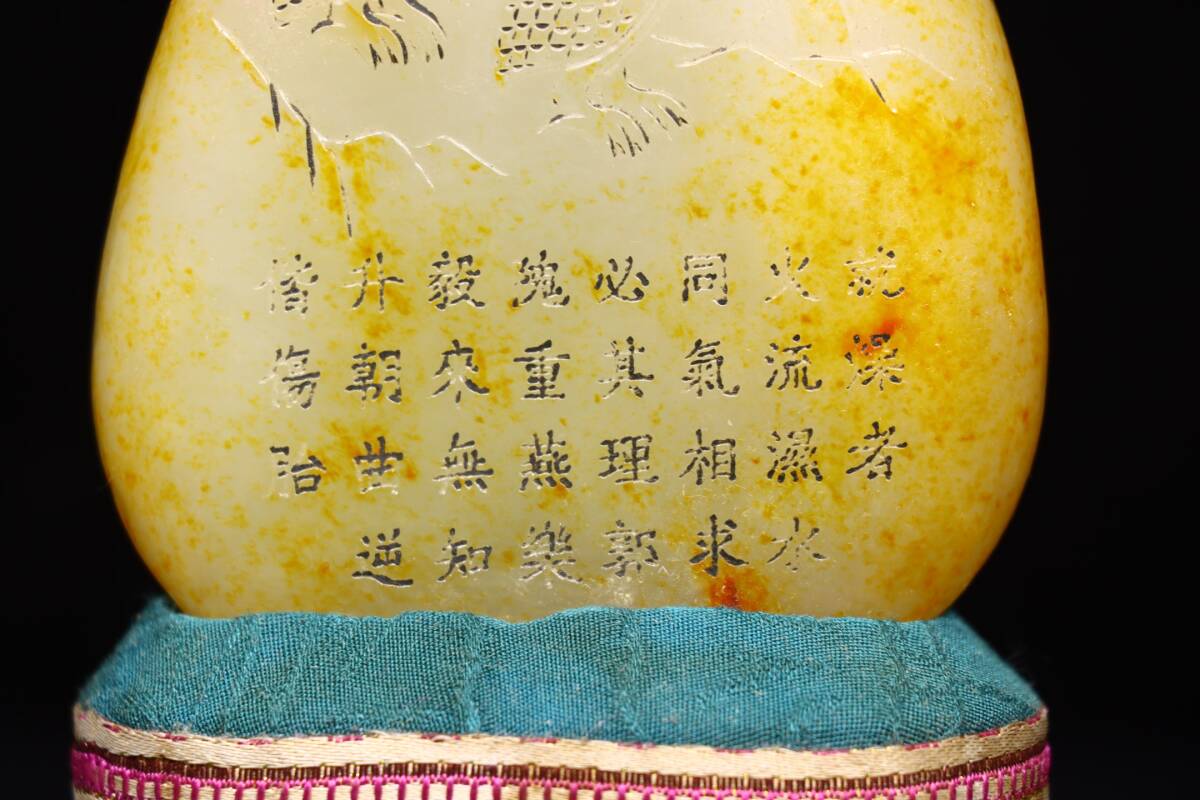 就燥者
火流濕水
同氣相求
必其理郭
塊重燕樂
毅來無知
升朝曲逆
傷詒